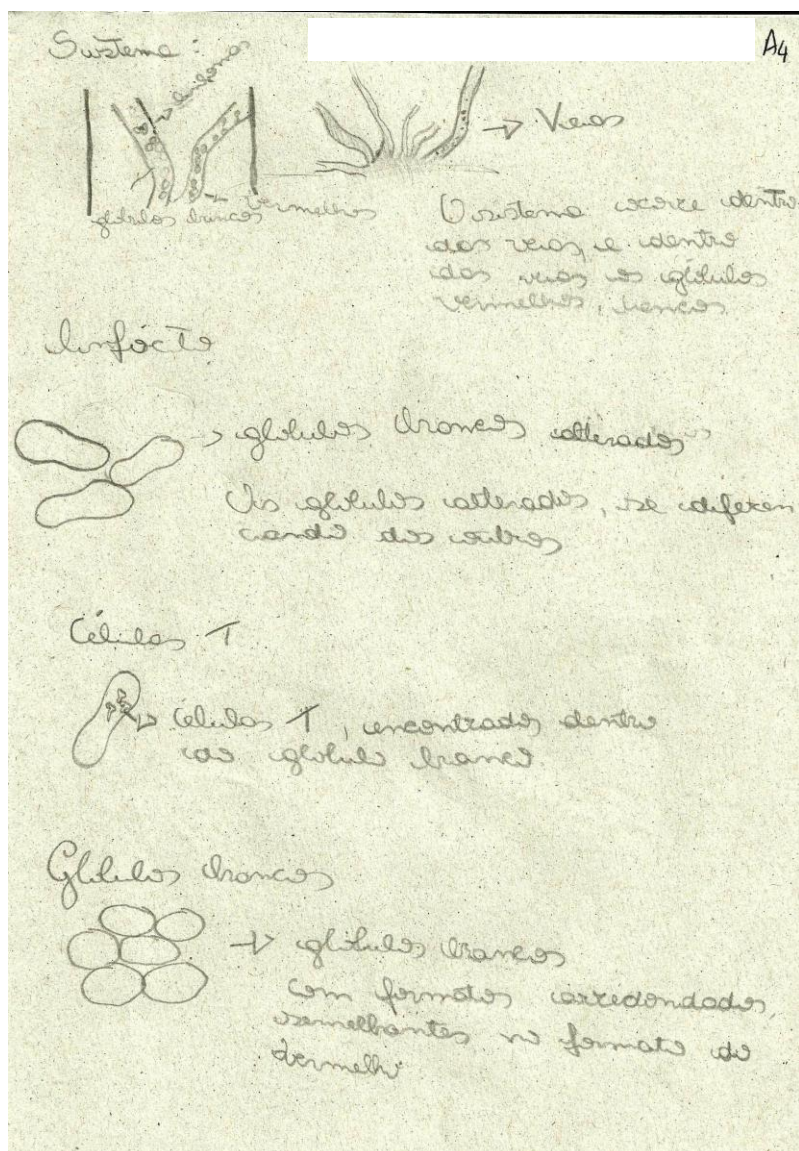 Sistema:
A4
linfomas
→ Veias
glóbulos brancos vermelhos
O sistema ocorre dentro
das veias, e dentro
das veias os glóbulos
vermelhos, brancos.
Linfócito
→ glóbulos brancos alterados
Os glóbulos alterados, se diferen
ciando dos outros
Células T
→ Células T, encontrados dentro
do glóbulo branco
Glóbulos brancos
→ glóbulos brancos
com formatos arredondados,
semelhantes no formato do
vermelho